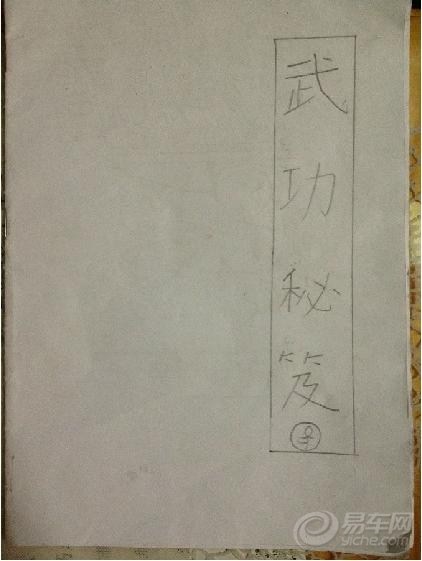 武功秘笈
易车网
yiche.com